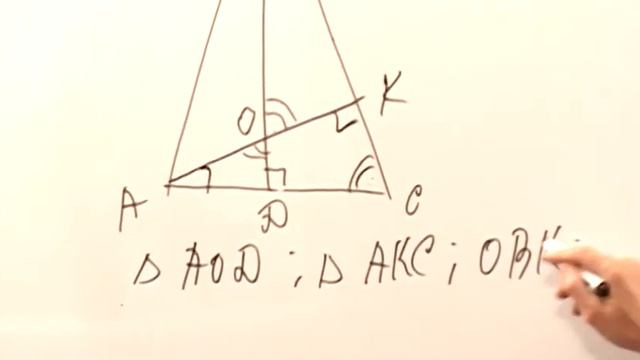 O
K
A
D
C
△ AOD ; △ AKC ; OBK